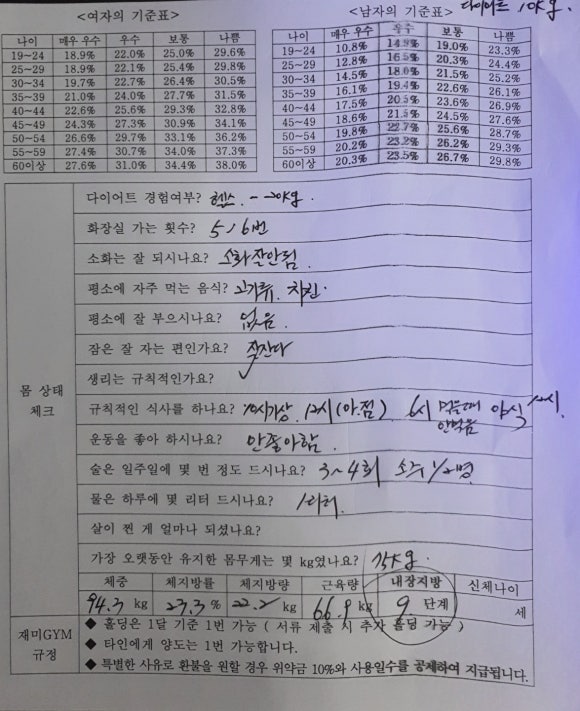 다이어트 10kg.
<여자의 기준표>
나이 매우 우수 우수 보통 나쁨
19~24 18.9% 22.0% 25.0% 29.6%
25~29 18.9% 22.1% 25.4% 29.8%
30~34 19.7% 22.7% 26.4% 30.5%
35~39 21.0% 24.0% 27.7% 31.5%
40~44 22.6% 25.6% 29.3% 32.8%
45~49 24.3% 27.3% 30.9% 34.1%
50~54 26.6% 29.7% 33.1% 36.2%
55~59 27.4% 30.7% 34.0% 37.3%
60이상 27.6% 31.0% 34.4% 38.0%
<남자의 기준표>
나이 매우 우수 우수 보통 나쁨
19~24 10.8% 14.9% 19.0% 23.3%
25~29 12.8% 16.5% 20.3% 24.4%
30~34 14.5% 18.0% 21.5% 25.2%
35~39 16.1% 19.4% 22.6% 26.1%
40~44 17.5% 20.5% 23.6% 26.9%
45~49 18.6% 21.5% 24.5% 27.6%
50~54 19.8% 22.7% 25.6% 28.7%
55~59 20.2% 23.2% 26.2% 29.3%
60이상 20.3% 23.5% 26.7% 29.8%
몸 상태
체크
다이어트 경험여부? 헬스.
화장실 가는 횟수? 5/6번
소화는 잘 되시나요? 소화잘안됨.
평소에 자주 먹는 음식? 고기류. 치킨.
평소에 잘 부으시나요? 없음.
잠은 잘 자는 편인가요? 잘잔다
생리는 규칙적인가요?
규칙적인 식사를 하나요? 10시기상. 12시(아점) 6시 먹을때 안먹음 야식
운동을 좋아 하시나요? 안좋아함.
술은 일주일에 몇 번 정도 드시나요? 3~4회 소주 1/2병
물은 하루에 몇 리터 드시나요? 1리터.
살이 찐 게 얼마나 되셨나요?
가장 오랫동안 유지한 몸무게는 몇 kg였나요?
체중 체지방률 체지방량 근육량 내장지방 신체나이
94.3 kg 23.3 % 22.2 kg 66.9 kg 9 단계 세
재미GYM
규정
◆ 홀딩은 1달 기준 1번 가능 ( 서류 제출 시 추자 홀딩 가능 )
◆ 타인에게 양도는 1번 가능합니다.
◆ 특별한 사유로 환불을 원할 경우 위약금 10%와 사용일수를 공제하여 지급됩니다.